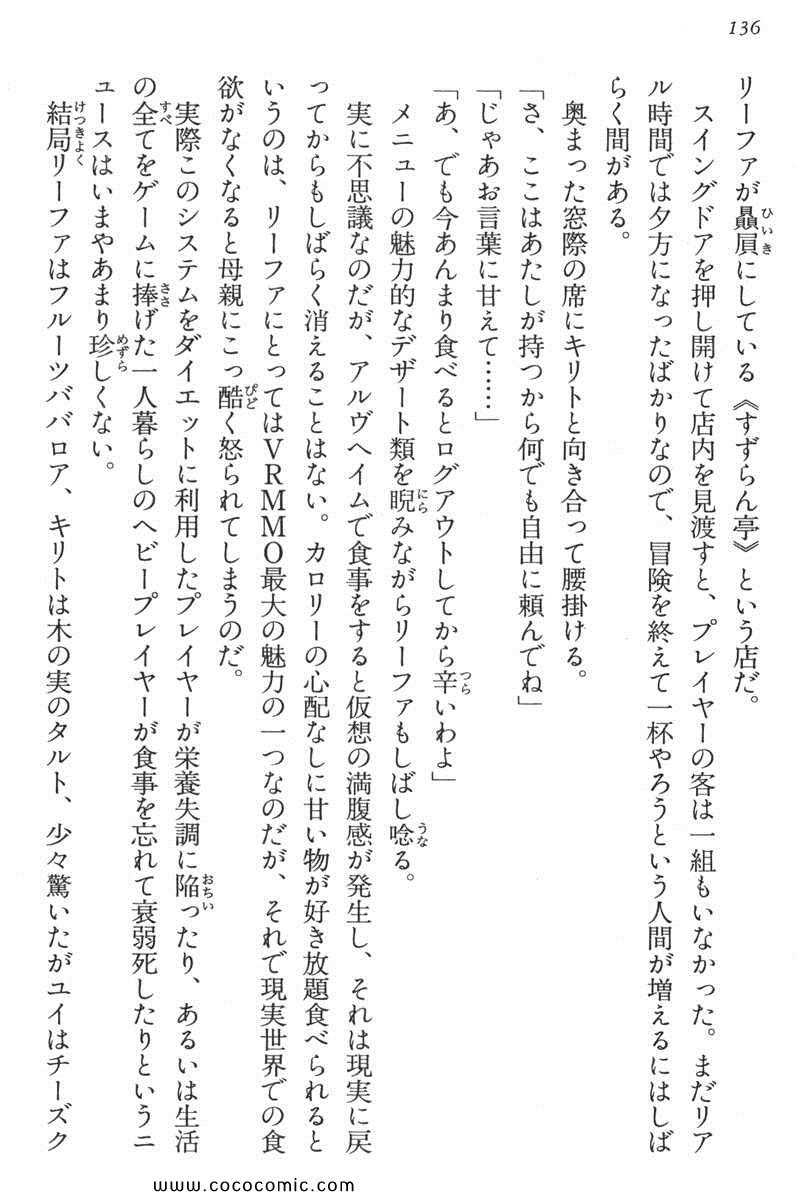 136
リーファが贔屓にしている《すずらん亭》という店だ。
スイングドアを押し開けて店内を見渡すと、プレイヤーの客は一組もいなかった。まだリア
ル時間では夕方になったばかりなので、冒険を終えて一杯やろうという人間が増えるにはしば
らく間がある。
奥まった窓際の席にキリトと向き合って腰掛ける。
「さ、ここはあたしが持つから何でも自由に頼んでね」
「じゃあお言葉に甘えて……」
「あ、でも今あんまり食べるとログアウトしてから辛いわよ」
メニューの魅力的なデザート類を睨みながらリーファもしばし唸る。
実に不思議なのだが、アルヴヘイムで食事をすると仮想の満腹感が発生し、それは現実に戻
ってからもしばらく消えることはない。カロリーの心配なしに甘い物が好き放題食べられると
いうのは、リーファにとってはVRMMO最大の魅力の一つなのだが、それで現実世界での食
欲がなくなると母親にこっ酷く怒られてしまうのだ。
実際このシステムをダイエットに利用したプレイヤーが栄養失調に陥ったり、あるいは生活
の全てをゲームに捧げた一人暮らしのヘビープレイヤーが食事を忘れて衰弱死したりというニ
ュースはいまやあまり珍しくない。
結局リーファはフルーツババロア、キリトは木の実のタルト、少々驚いたがユイはチーズク
www.cococomic.com